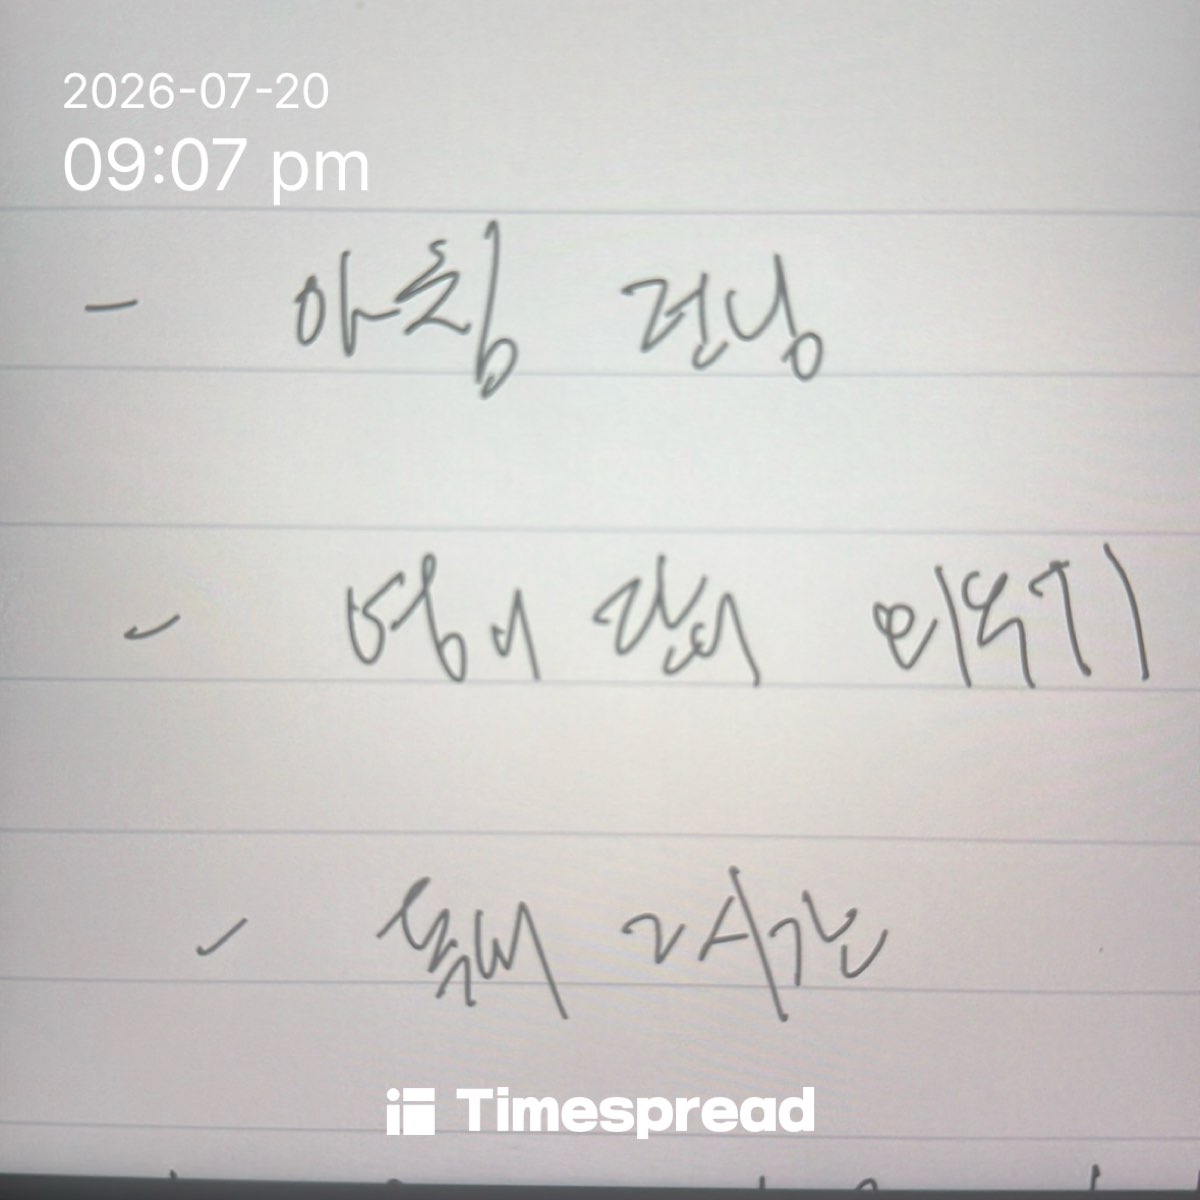 2026-07-20
09:07 pm
- 아침 런닝
- 영어 단어 외우기
- 독서 2시간
Timespread